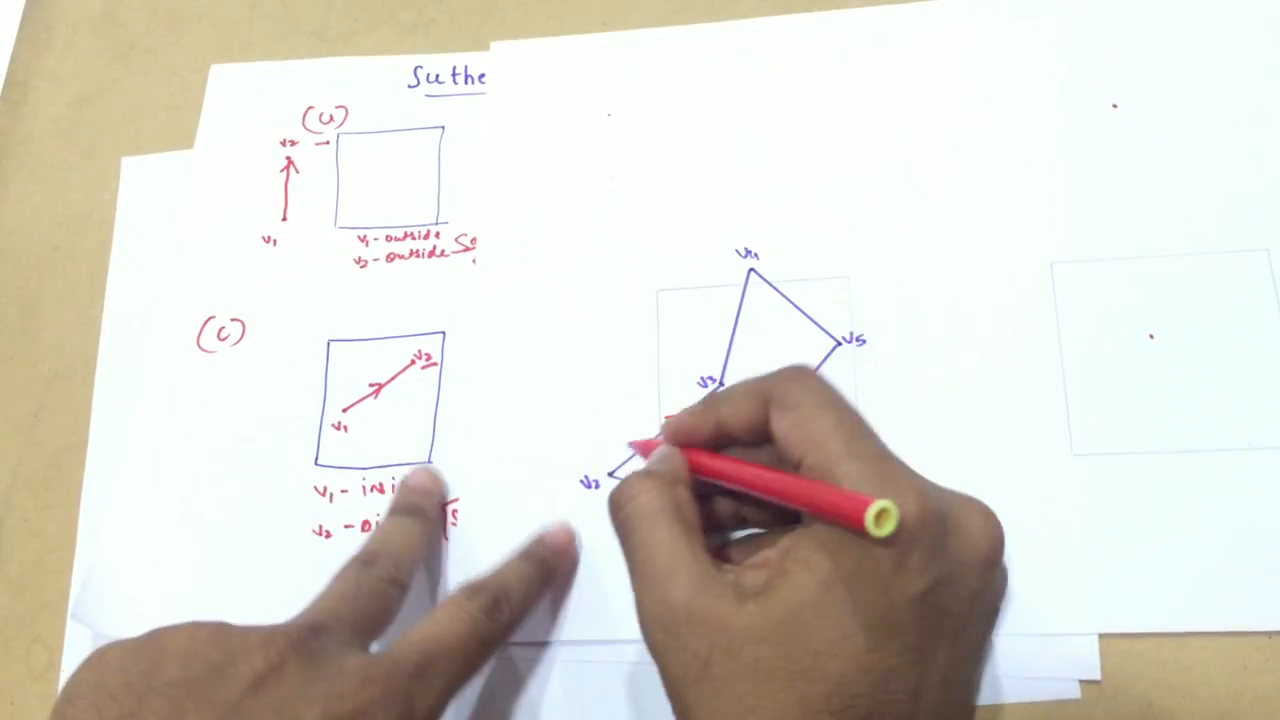 Suthe
(a)
v2
v1
v1 - outside
v2 - outside
(c)
v2
v1
v1 - insi
v2 -
v4
v5
v3
v2